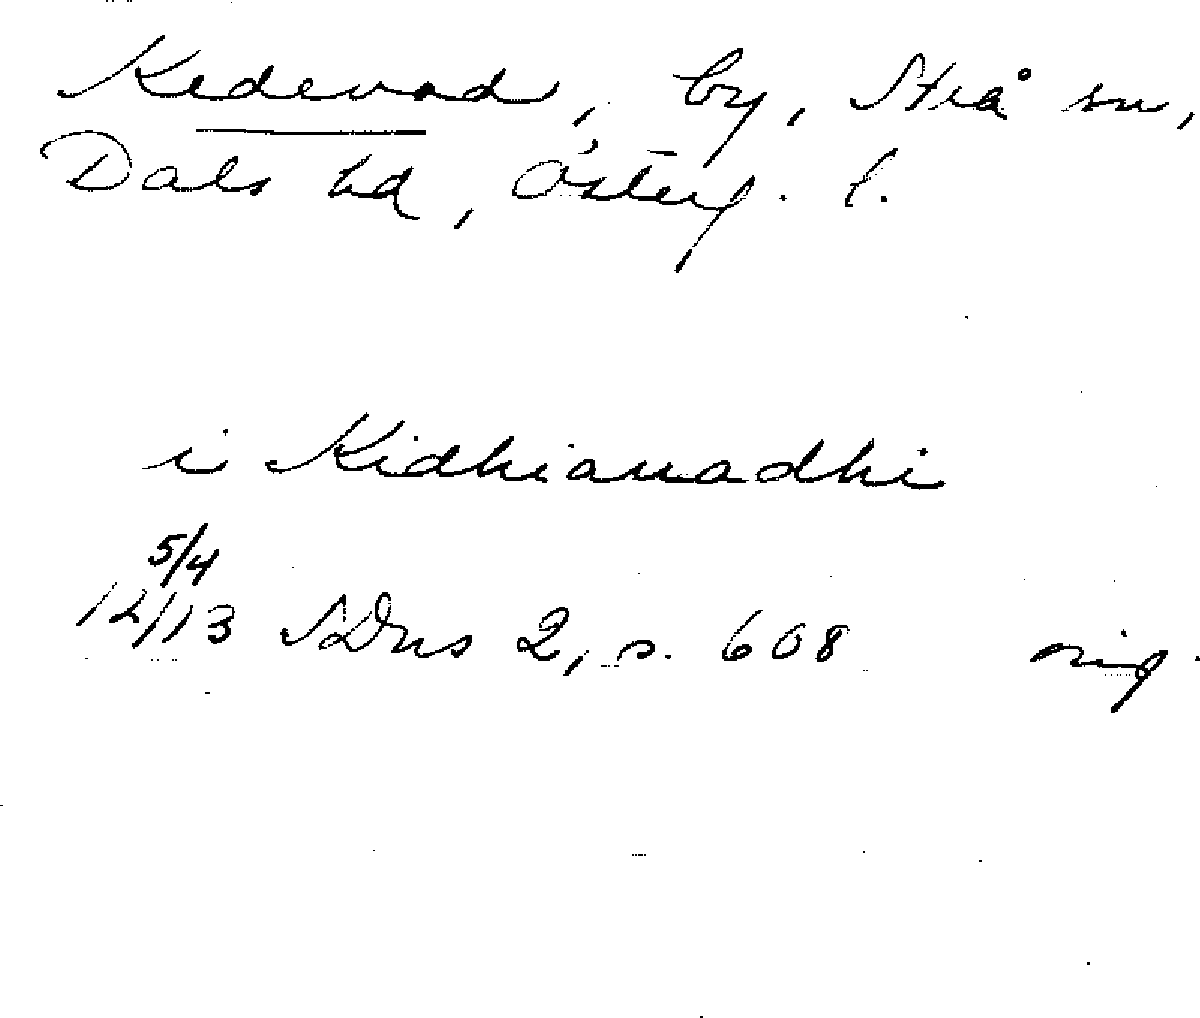 Kedevad, by, Strå sn,
Dals hd, Österg. l.
i Kidhiauadhi
5/4
1413 SDns 2, s. 608 orig.